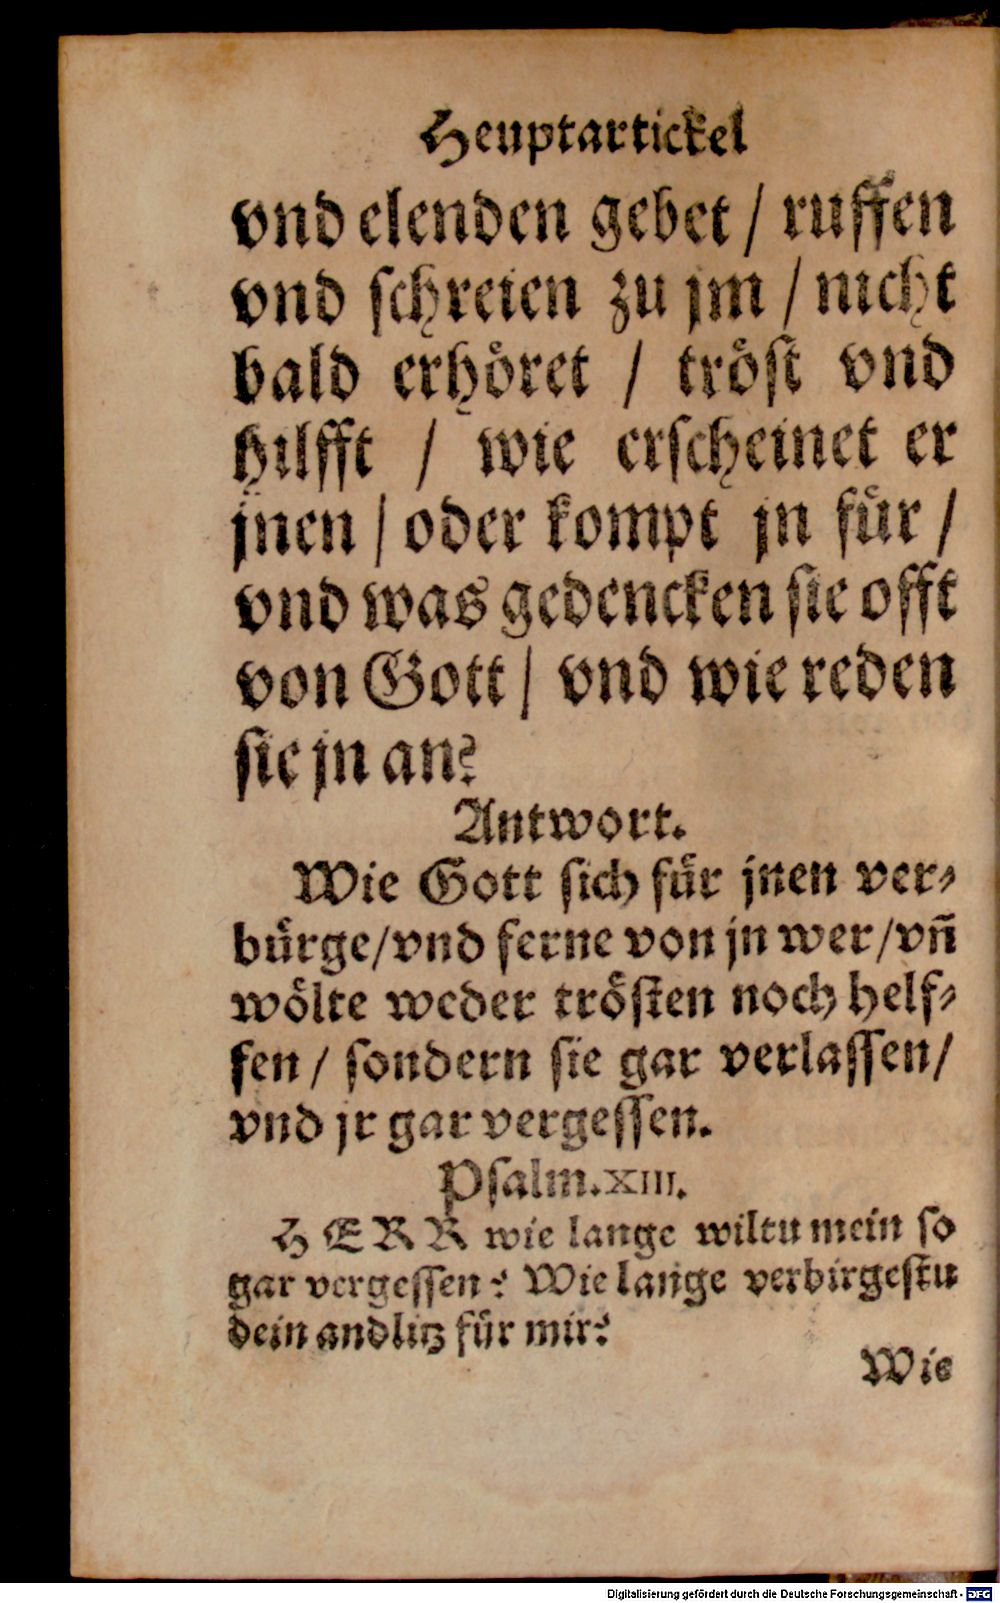 Heuptartickel
vnd elenden gebet / ruffen
vnd schreien zu jm / nicht
bald erhöret / tröst vnd
hilfft / wie erscheinet er
jnen / oder kompt jn für /
vnd was gedencken sie offt
von Gott / vnd wie reden
sie jn an?
Antwort.
Wie Gott sich für jnen ver-
bürge/vnd ferne von jn wer/vñ
wölte weder trösten noch helf-
fen / sondern sie gar verlassen/
vnd jr gar vergessen.
Psalm.XIII.
HERR wie lange wiltu mein so
gar vergessen? Wie lange verbirgestu
dein andlitz für mir?
Wie
Digitalisierung gefördert durch die Deutsche Forschungsgemeinschaft - DFG